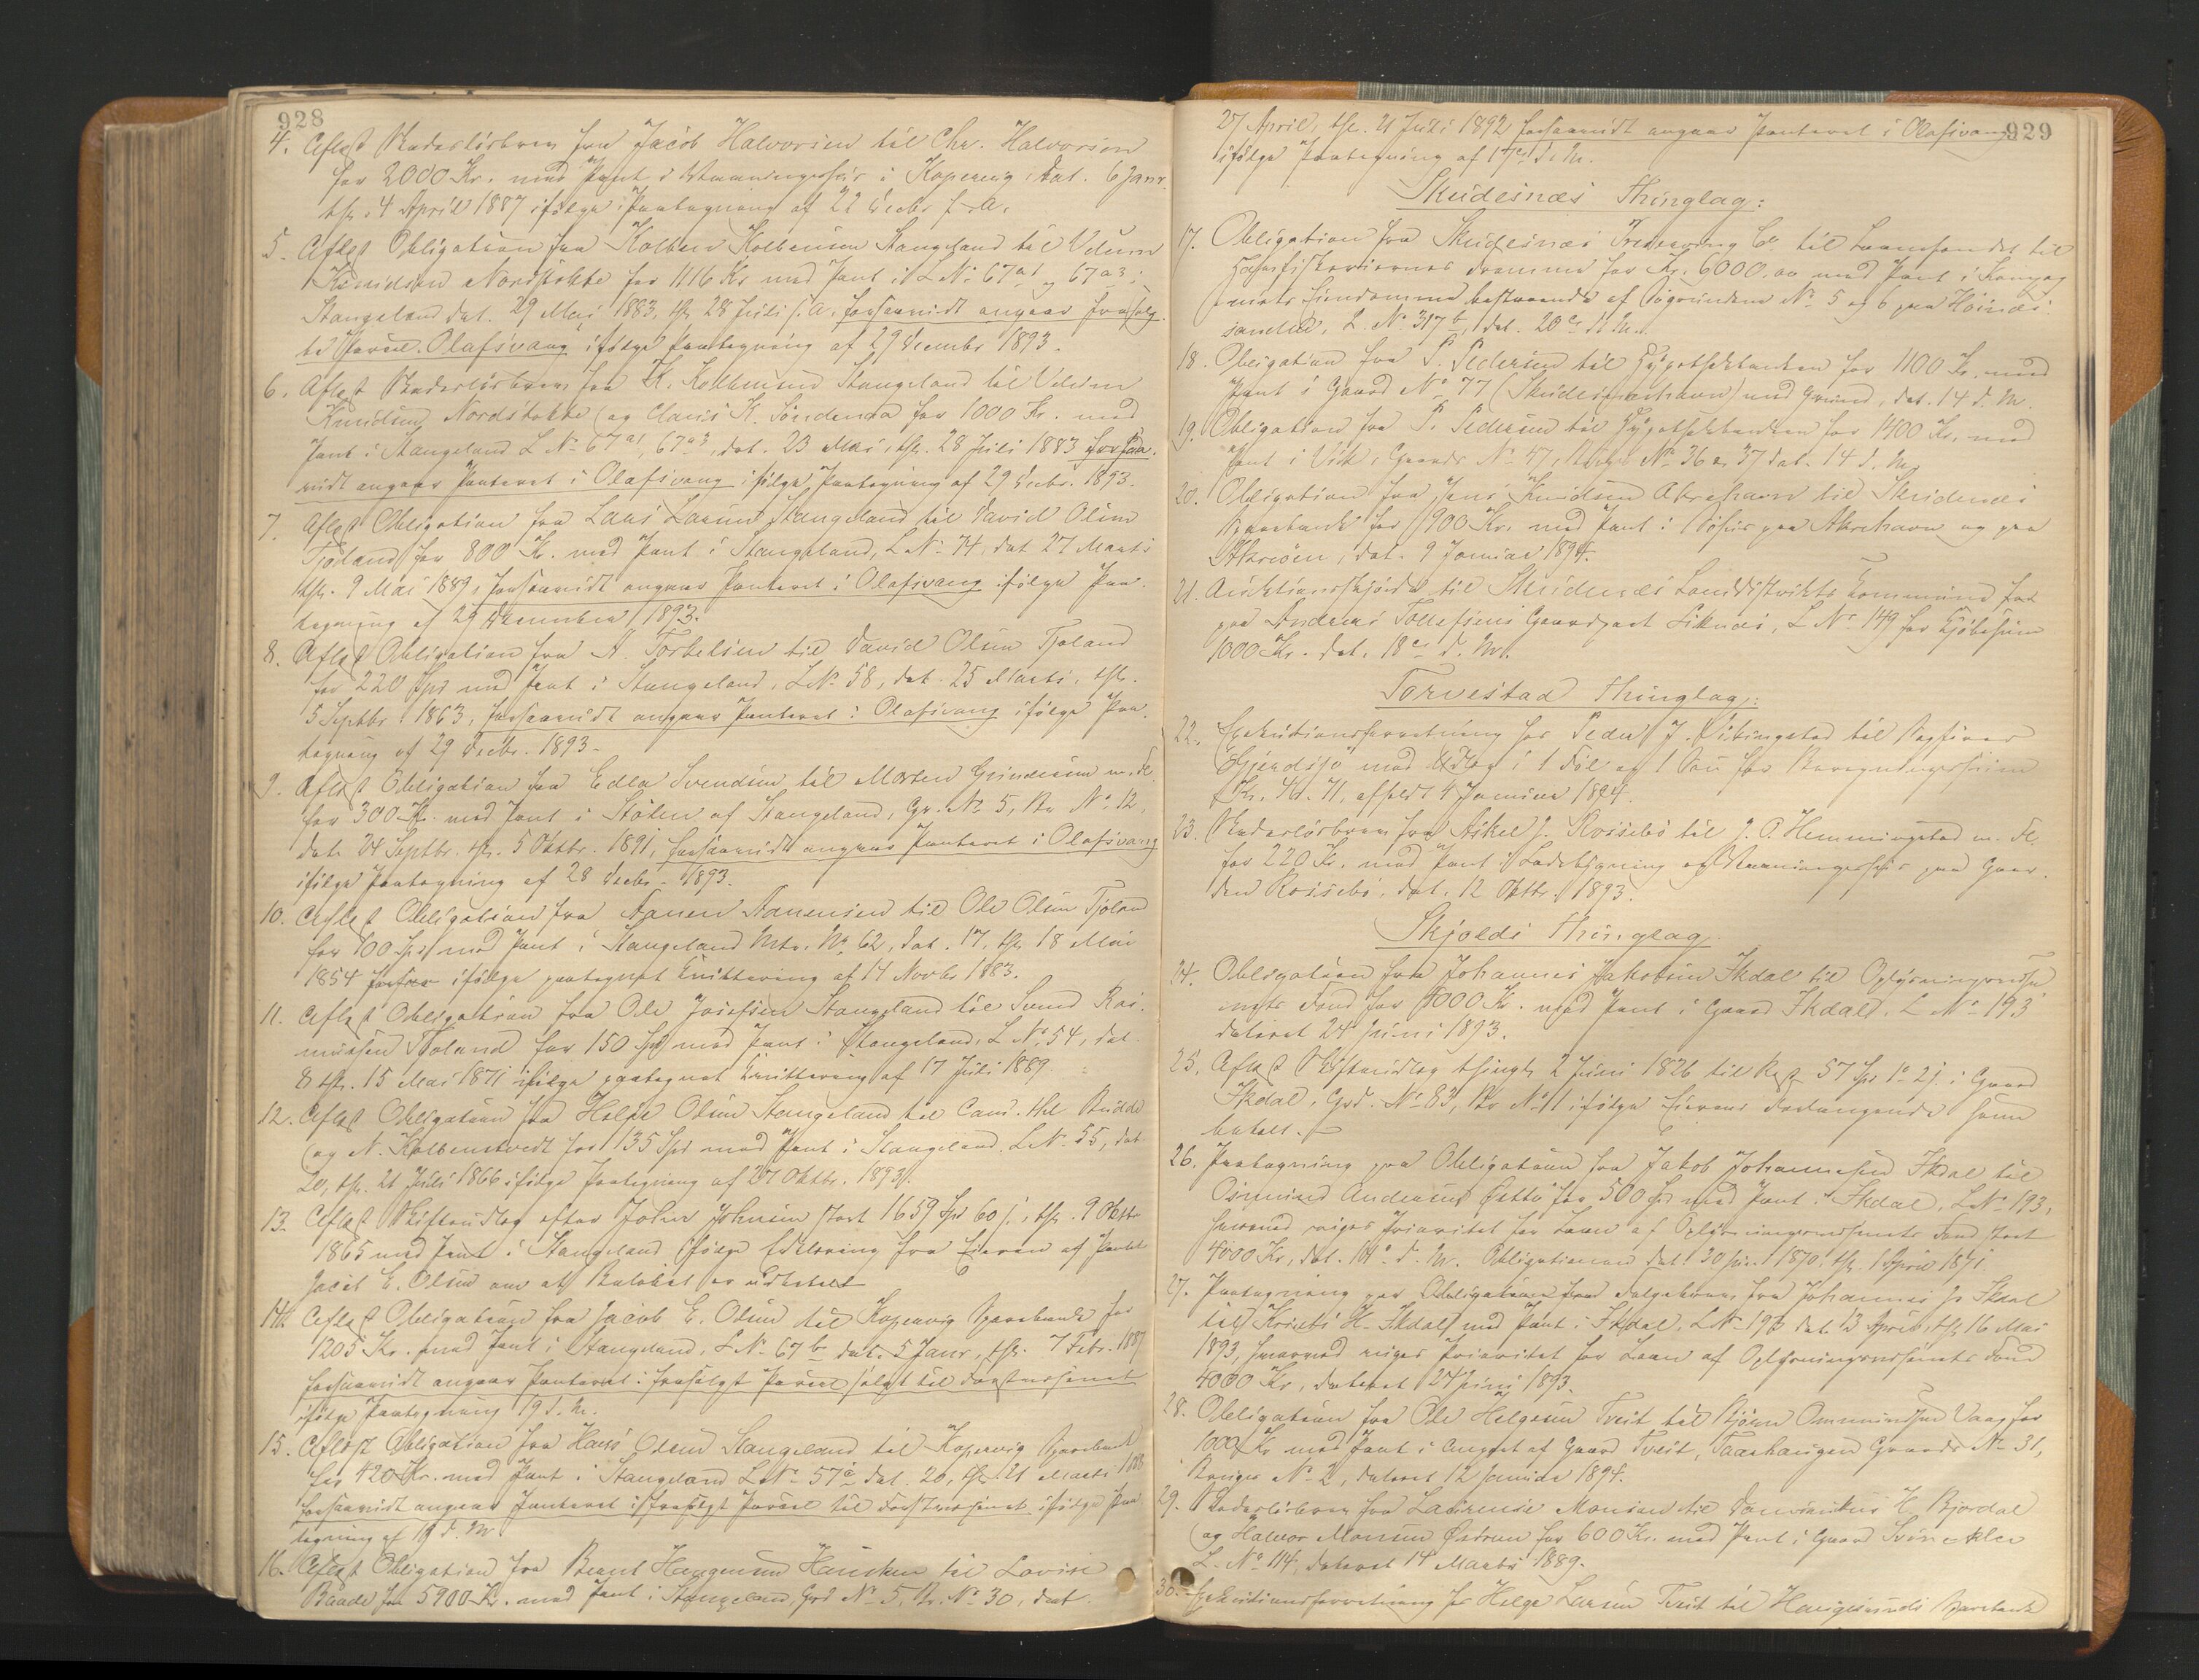 928
4. Aflæst Skadesløsbrev fra Jacob Halvorsen til Chr. Halvorsen
for 2000 Kr. med Pant i Vaaningshus i Kopervig, dat. 6 Janr.
thl. 4 April 1887 ifølge Paategning af 22 Decbr f. A.
5. Aflæst Obligation fra Kolben Kolbensen Stangeland til Velum
Knudsen Nordstokke for 1116 Kr med Pant i L No 67a1 og 67a3 i
Stangeland dat. 29 Mai 1883, thl. 28 Juli s. A. forsaavidt angaar frasolg-
te Parcel Olafsvang ifølge Paategning af 29 Decembr 1893.
6. Aflæst Skadesløsbrev fra K. Kolbensen Stangeland til Velum
Knudsen Nordstokke og Claus K. Søndenaa for 1000 Kr. med
Pant i Stangeland L No 67a1, 67a3, dat. 23 Mai, thl. 28 Juli 1883 forsaa-
vidt angaar Panteret i Olafsvang ifølge Paategning af 29 Decbr. 1893.
7. Aflæst Obligation fra Lars Larsen Stangeland til David Olsen
Tjoland for 800 Kr. med Pant i Stangeland, L No 74, dat 27 Marts
thl. 9 Mai 1889, forsaavidt angaar Panteret i Olafsvang ifølge Paa-
tegning af 29 December 1893.
8. Aflæst Obligation fra A. Torbelsen til David Olsen Tjoland
for 220 Spd med Pant i Stangeland, L No 58, dat. 25 Marts, thl.
5 Septbr. 1863, forsaavidt angaar Panteret i Olafsvang ifølge Paa-
tegning af 29 Decbr. 1893.
9. Aflæst Obligation fra Edla Svendsen til Morten Gundersen m. Fl.
for 300 Kr. med Pant i Stølen af Stangeland, Gr. No 5, Br No 12,
dat. 24 Septbr. thl. 5 Oktbr. 1891, forsaavidt angaar Panteret i Olafsvang
ifølge Paategning af 28 Decbr. 1893.
10. Aflæst Obligation fra Aanen Aanensen til Ole Olsen Tjoland
for 100 Spd med Pant i Stangeland Mtr. No 62, dat. 17, thl. 18 Mai
1854 ifølge paategnet Kvittering af 14 Novbr 1883.
11. Aflæst Obligation fra Ole Josefsen Stangeland til Svend Ras-
mussen Tjoland for 150 Spd med Pant i Stangeland, L No 54, dat.
8 thl. 15 Mai 1871 ifølge paategnet Kvittering af 17 Juli 1889.
12. Aflæst Obligation fra Helge Olsen Stangeland til Cand. thl Budde
og N. Kolbenstvedt for 135 Spd med Pant i Stangeland L No 55, dat
20, thl. 21 Juli 1866 ifølge Paategning af 27 Oktbr. 1893.
13. Aflæst Skifteudlæg efter John Johnsen stort 1659 Spd 60 s, thl. 9 Oktbr
1865 med Pant i Stangeland ifølge Erklæring fra Eieren af Pantet
Jacob E. Olsen om at Beløbet er udbetalt
14. Aflæst Obligation fra Jacob E. Olsen til Kopervig Sparebank for
1205 Kr. med Pant i Stangeland, L No 67b dat. 5 Janr, thl. 7 Febr. 1887
forsaavidt angaar Panteret i frasolgt Parcel solgt til Forstvæsenet
ifølge Paategning 19 d. M.
15. Aflæst Obligation fra Hans Olsen Stangeland til Kopervig Sparebank
for 420 Kr. med Pant i Stangeland L No 57a dat. 20, thl. 21 Marts
forsaavidt angaar Panteret i frasolgt Parcel til Forstvæsenet ifølge Paa-
tegning af 19 d. M.
16. Aflæst Obligation fra Hansken til Lovise
Baade for 5900 Kr. med Pant i Stangeland, Grd No 5, Br. No 30, dat.
929
27 April, thl. 21 Juli 1892 forsaavidt angaar Panteret i Olafsvang
ifølge Paategning af 17de d. M.
Skudesnæs Thinglag:
17. Obligation fra Skudesnæs Co til Laanefondet til
Havfiskeriernes Fremme for Kr. 6000.00 med Pant i Kompag-
niets Eiendomme bestaaende af Søgrundene No 5 og 6 paa
L. No 317b, dat. 20de d. M.
18. Obligation fra P. Pedersen til Hypothekbanken for 1100 Kr. med
Pant i Gaard No 77 (Skudesneshavn) med Grund, dat. 14 d. M.
19. Obligation fra P. Pedersen til Hypothekbanken for 1400 Kr. med
Pant i Vik, Gaards No 47, Brugs No 36 & 37 dat. 14 d. M.
20. Obligation fra Jens Knudsen Akrehavn til Skudenæs
Sparebank for 900 Kr. med Pant i Søhus paa Akrehavn og paa
Akreøen, dat. 9 Januar 1894.
21. Auktionsskjøde til Skudenæs Landdistrikts Kommune
paa Andreas Tollefsens Gaardpart Liknes, L No 149 for Kjøbesum
1000 Kr. dat. 18de d. M.
Torvestad Thinglag:
22. Exekutionsforretning hos Peder J. Vibingstad til Sagfører
Gjerdsjø med Udlæg i 1 Føl og 1 Sau for
Kr. 44.71, afholdt 4 Januar 1894.
23. Skadesløsbrev fra Askel J. Rossebø til J. O. Hemmingstad m. Fl.
for 220 Kr. med Pant i Ladebygning og Vaaningshus paa Gaar-
den Rossebø, dat. 12 Oktbr. 1893.
Skjolds Thinglag.
24. Obligation fra Johannes Jakobsen Ikdal til Oplysningsvæse-
nets Fond for 4000 Kr. med Pant i Gaard Ikdal. L No 193
dateret 24 Juni 1893.
25. Aflæst Skifteudlæg thingl. 2 Juni 1826 til Rest 57 Spd 1 o 21 i Gaard
Ikdal, Grd. No 83, Br No 1 ifølge Eierens Forlangende som
betalt.
26. Paategning paa Obligation fra Jakob Johannesen Ikdal til
Osmund Andersen for 500 Spd med Pant i Ikdal, L No 193,
hvorved viges Prioritet for Laan af Oplysningsvæsenets Fond stort
4000 Kr, dat. 14de d. M. Obligationen dat. 30 Juni 1870, thl. 1 April 1871.
27. Paategning paa Følgebrev fra Johannes J. Ikdal
til Kristi H. Ikdal med Pant i Ikdal. L No 193 dat. 13 April, thl 16 Mai
1893, hvorved viges Prioritet for Laan af Oplysningsvæsenets Fond
4000 Kr, dateret 24 Juni 1893.
28. Obligation fra Ole Helgesen Tveit til Bjørn Ommundsen Vaag for
1000 Kr med Pant i af Gaard Tveit, Gaards No 31,
Bruges No 2, dateret 12 Januar 1894.
29. Skadesløsbrev fra Laurense Monsen til H Bjordal
og Halvor Monsen Østrem for 600 Kr. med Pant i Gaard
L. No 114, dateret 14 Marts 1889.
30. Exekutionsforretning hos Helge Larsen Tveit til Haugesunds Sparebank